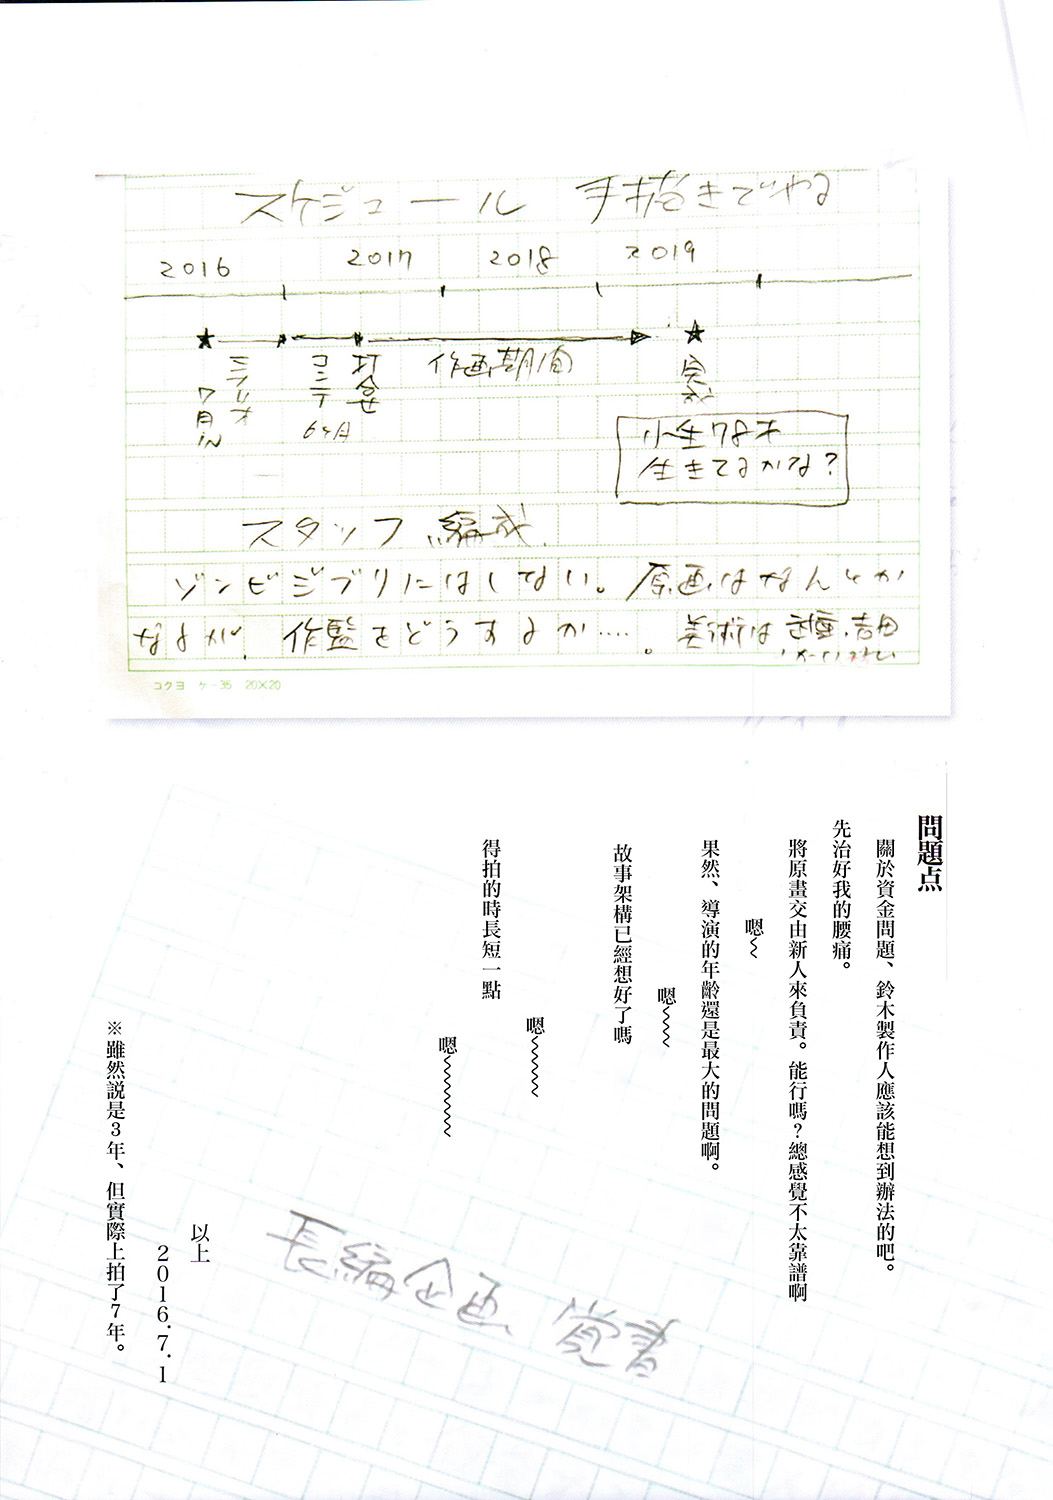 スケジュール 手描きでやる
2016 2017 2018 2019
7月iN
シナリオ
コンテ
6ヶ月
打合せ
作画期間
完成
小生78才
生きてるかな?
スタッフ編成
ゾンビジブリにはしない。原画はなんとか
なるが、作監をどうするか…。美術は 吉田
コクヨ ケー35 20×20
問題点
關於資金問題、鈴木製作人應該能想到辦法的吧。
先治好我的腰痛。
將原畫交由新人來負責。能行嗎?總感覺不太靠譜啊
嗯〜
果然、導演的年齡還是最大的問題啊。
嗯〜〜
故事架構已經想好了嗎
嗯〜〜〜
得拍的時長短一點
嗯〜〜〜〜
以上
2016.7.1
※雖然説是3年、但實際上拍了7年。
長編企画 覚書